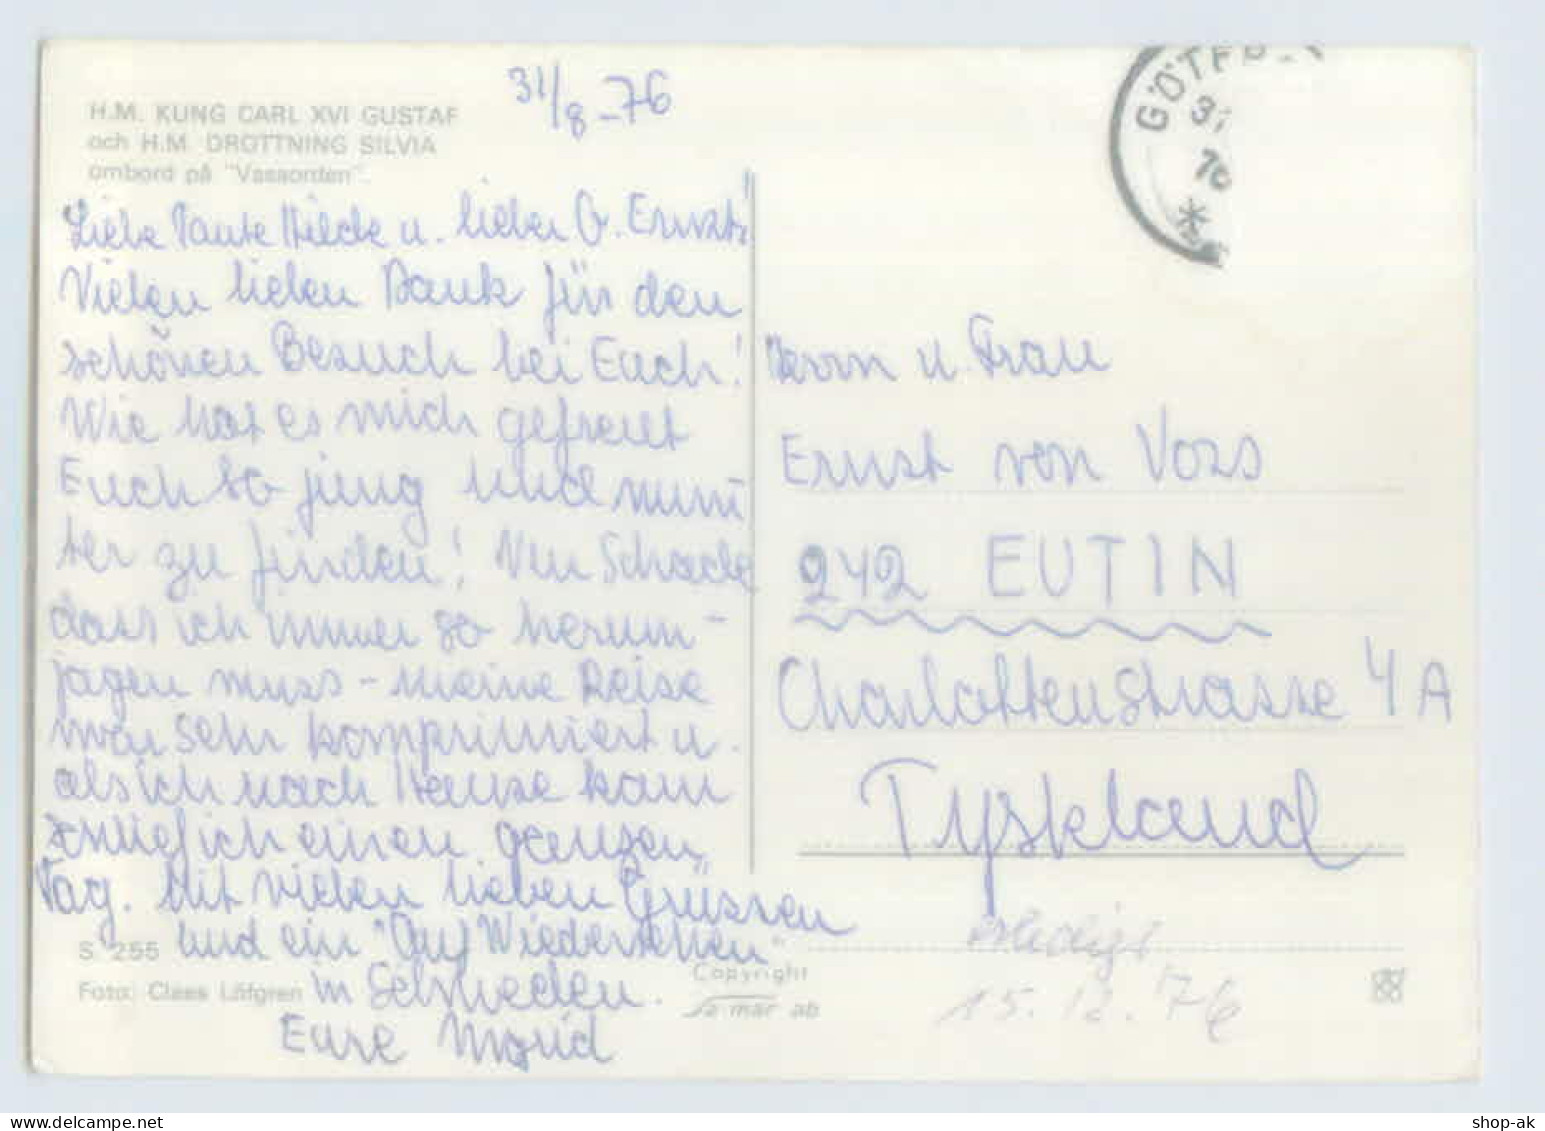 31/8-76
H.M. KUNG CARL XVI GUSTAF
och H.M. DROTTNING SILVIA
ombord på "Vasaorden".
Liebe Tante Hilde u. lieber O. Ernst!
Vielen lieben Dank für den
schönen Besuch bei Euch!
Wie hat es mich gefreut
Euch so jung und mun
ter zu finden! Nur Schade
dass ich immer so herum-
jagen muss - meine Reise
war sehr komprimiert u.
als ich nach Hause kam
schlief ich einen ganzen
Tag. Mit vielen lieben Grüssen
und ein "Auf Wiedersehen"
in Schweden.
Eure
S 255
Foto: Claes Löfgren
Copyright
mär ab
GÖTEB
31
76
*
Herrn u. Frau
Ernst von Voss
242 EUTIN
Charlottenstrasse 4 A
Tyskland
erledigt
15.12.76
shop-ak